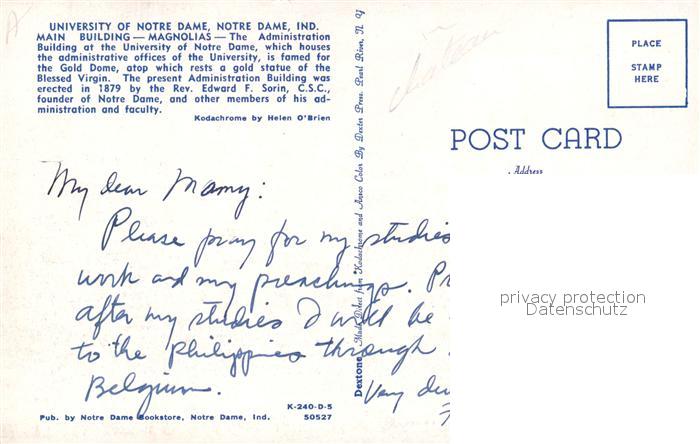 UNIVERSITY OF NOTRE DAME, NOTRE DAME, IND.
MAIN BUILDING — MAGNOLIAS — The Administration
Building at the University of Notre Dame, which houses
the administrative offices of the University, is famed for
the Gold Dome, atop which rests a gold statue of the
Blessed Virgin. The present Administration Building was
erected in 1879 by the Rev. Edward F. Sorin, C.S.C.,
founder of Notre Dame, and other members of his ad-
ministration and faculty.
Kodachrome by Helen O'Brien
My dear Mamy:
Please pray for my studies
work and my preachings. Pr
after my studies I will be
to the Philippines through
Belgium.
Very
K-240-D-5
50527
Pub. by Notre Dame Bookstore, Notre Dame, Ind.
Dextone Made Direct from Kodachrome and Ansco Color By Dexter Press, Pearl River, N. Y.
PLACE
STAMP
HERE
POST CARD
Address
privacy protection
Datenschutz